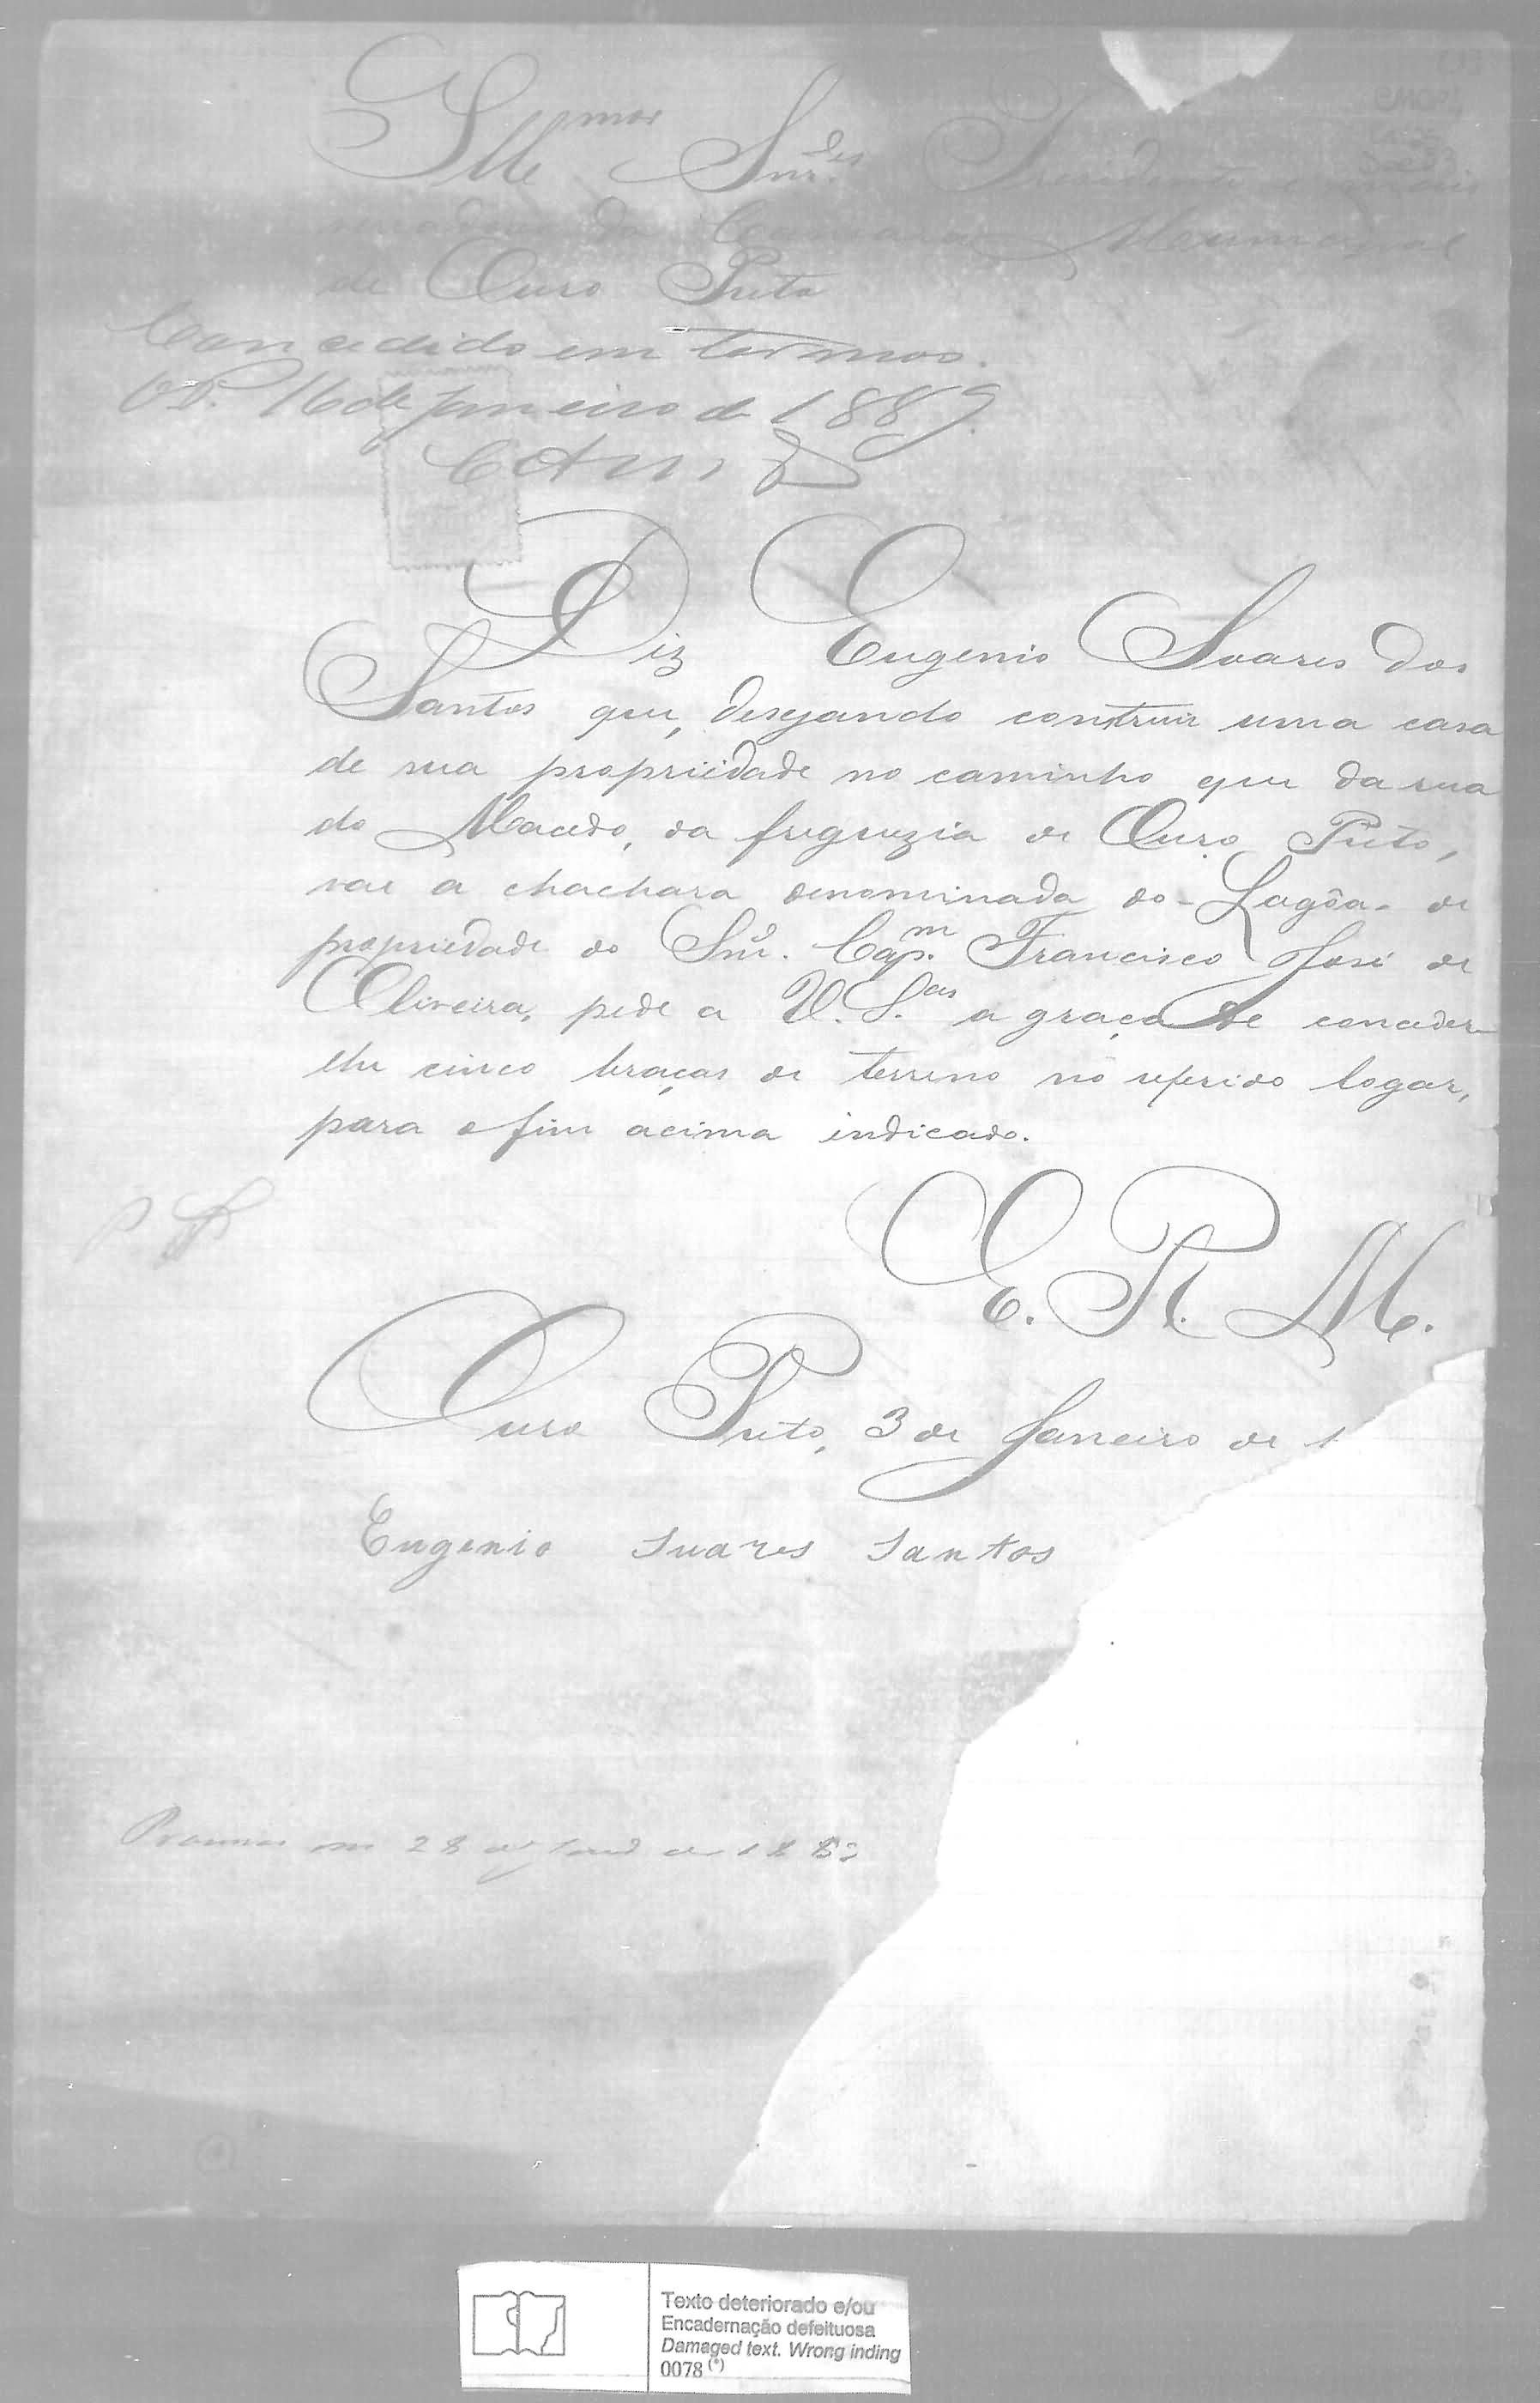 Illmos Snrdes Presidente e mais
readores da Camara Municipal
de Ouro Preto
Concedido em termos.
O P. 16 de Janeiro de 1889.
Diz Eugenio Soares dos
Santos que, desejando contruir uma casa
de sua propriedade no caminho que da rua
do Macedo, da freguezia de Ouro Preto,
vae a chachara denominada do - Lagôa - de
propriedade do Snr. Capm. Francisco José de
Oliveira, pede a V. S.as a graça de conceder-
lhe cinco braças de terreno no referido logar,
para o fim acima indicado.
E. R. M.
Ouro Preto, 3 de Janeiro de 1
Eugenio Suares Santos
em 28 de
Texto deteriorado e/ou
Encadernação defeituosa
Damaged text. Wrong inding
0078 (*)